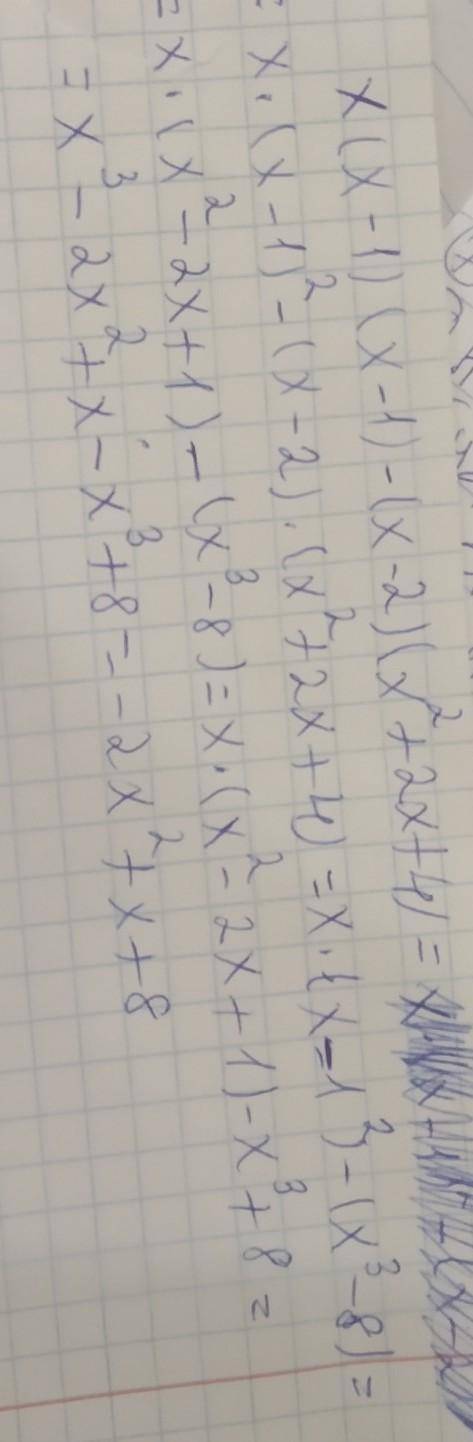 x(x-1)(x-1)-(x-2)(x²+2x+4)=
= x·(x-1)²-(x-2)·(x²+2x+4)=x·(x-1²)-(x³-8)=
= x·(x²-2x+1)-(x³-8)=x·(x²-2x+1)-x³+8=
= x³-2x²+x-x³+8=-2x²+x+8